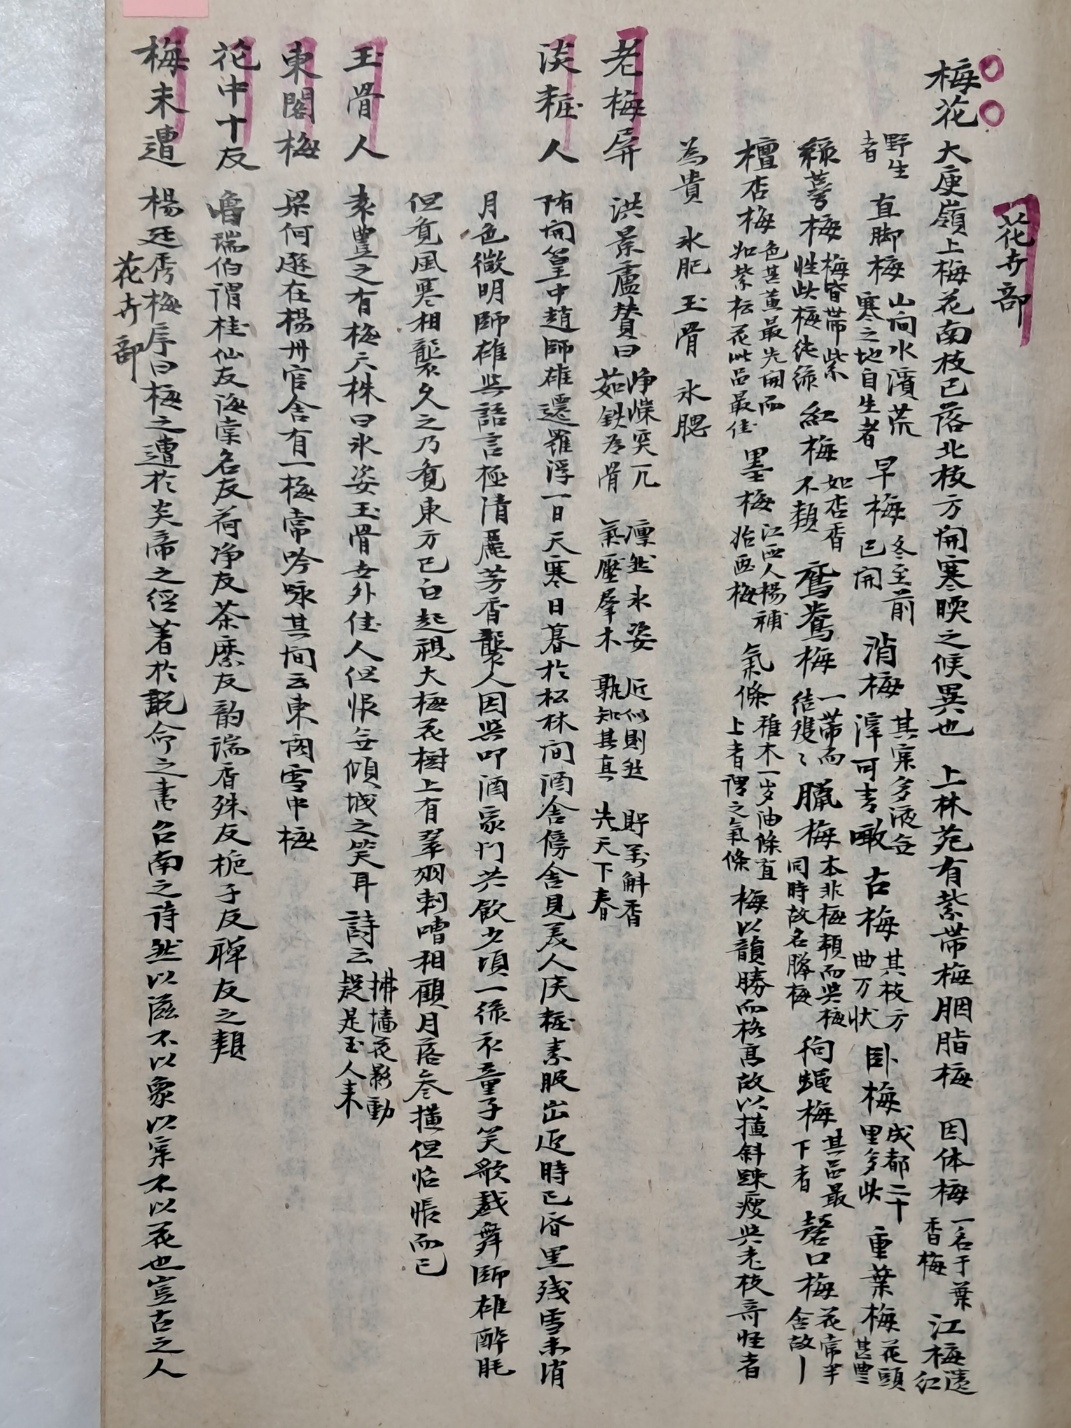 花卉部
梅花 大庾嶺上梅花南枝已落北枝方開寒暖之候異也 上林苑有紫蒂梅胭脂梅 因体梅 一名千葉香梅 江梅 遠江
野生者 直脚梅 山向水濱荒寒之地自生者 早梅 冬至前已開 消梅 其实多液无滓可生噉 古梅 其枝方曲万状 卧梅 成都二十里多此 重葉梅 花頭甚豊
綠萼梅 梅皆蒂紫此梅純綠 紅梅 如杏香不類 鴛鴦梅 一蒂而結雙〻 臘梅 本非梅類而與梅同時故名臘梅 狗蝇梅 其品最下者 磬口梅 花常半含故｜
檀杏梅 色甚黄最先開而如紫檀花此品最佳 墨梅 江西人楊補 氣條 稚木一岁油條直上者謂之氣條 梅以韻勝而格髙故以横斜踈瘦與老枝奇怪者
為貴 氷肥 玉骨 氷腮
老梅屏 洪景廬賛曰 崢嶸突兀茹鉄為骨 凜然氷姿氣壓羣木 近似則然孰知其真 貯萬斛香先天下春
淡粧人 隋開皇中趙師雄遷羅浮一日天寒日暮於松林間酒舍傍舍見美人淡粧素服出迎時已昏黑残雪未消
月色微明師雄與語言極清麗芳香襲人因與叩酒家門共飲少頃一綠衣童子笑歌戯舞師雄醉眠
但覓風寒相襲久之乃覓東方已白起視大梅花樹上有翠羽刺嘈相顧月落参横但惆悵而已
玉骨人 袁豊之有梅六株曰氷姿玉骨世外佳人但恨無傾城之笑耳 詩云 拂墻花影動疑是玉人来
東閣梅 梁何遜在楊州官舍有一梅常吟咏其間云東閣雪中梅
花中十友 魯瑞伯謂桂仙友海棠名友荷净友茶縻友韵瑞香殊友梔子友禅友之類
梅未遭 楊廷秀梅序曰梅之遭於炎帝之经著於說命之書召南之诗然以滋不以象以实不以花也豈古之人
花卉部